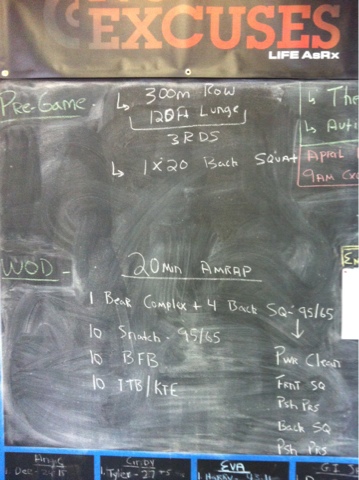 EXCUSES
LIFE AsRx
Pre-Game - ↳ 300m Row
120ft Lunge
3 RDS
↳ 1x20 Back Squat
↳ The
↳ Auti
April
9am
WOD - 20min AMRAP
1 Bear Complex + 4 Back SQ - 95/65
10 Snatch - 95/65
10 BFB
10 TTB/KTE
↓
Pwr Clean
Frnt SQ
Psh Prs
Back SQ
Psh Prs
Cindy
Tyler - 27 +5
EVA